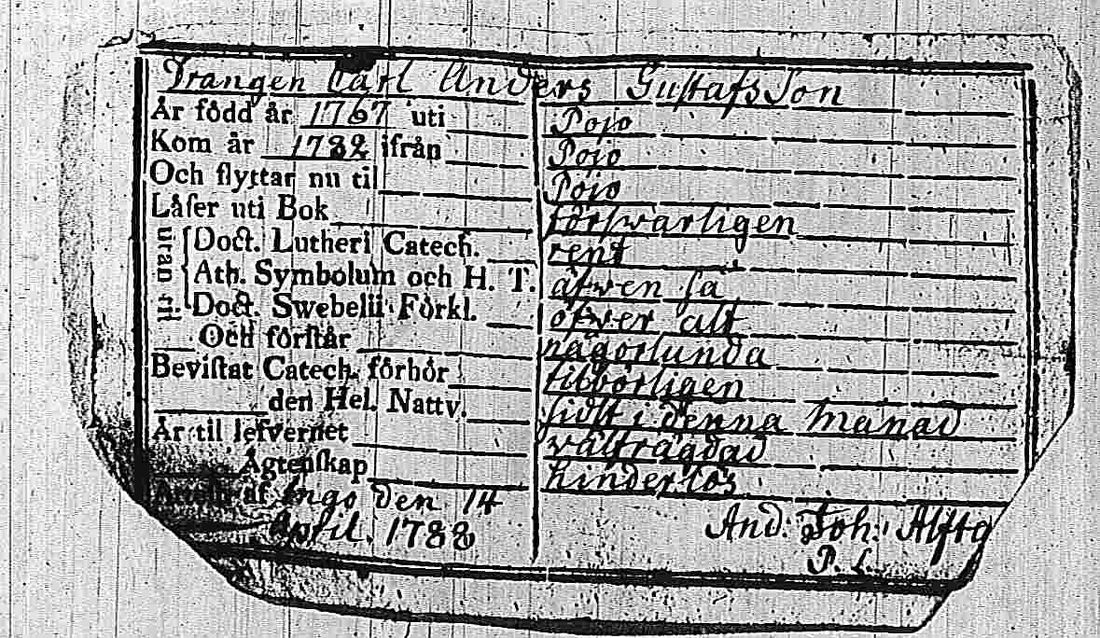 Drangen Carl Anders Gustafs Son
Är född år 1767 uti Pojo
Kom år 1782 ifrån Pojo
Och flyttar nu til Pojo
Läſer uti Bok förſwarligen
utan til Doct. Lutheri Catech. rent
Ath. Symbolum och H. T. äfwen ſa
Doct. Swebelii Förkl. öfver alt
Och förſtår någorlunda
Beviſtat Catech. förhör tilbörligen
den Hel. Nattv. ſidſt i denna Manad
Är til lefvernet välfrägdad
Ägtenſkap hinderlös
Atteſt. af Ingo den 14
April. 1788 And: Joh: Alftg
P. L.